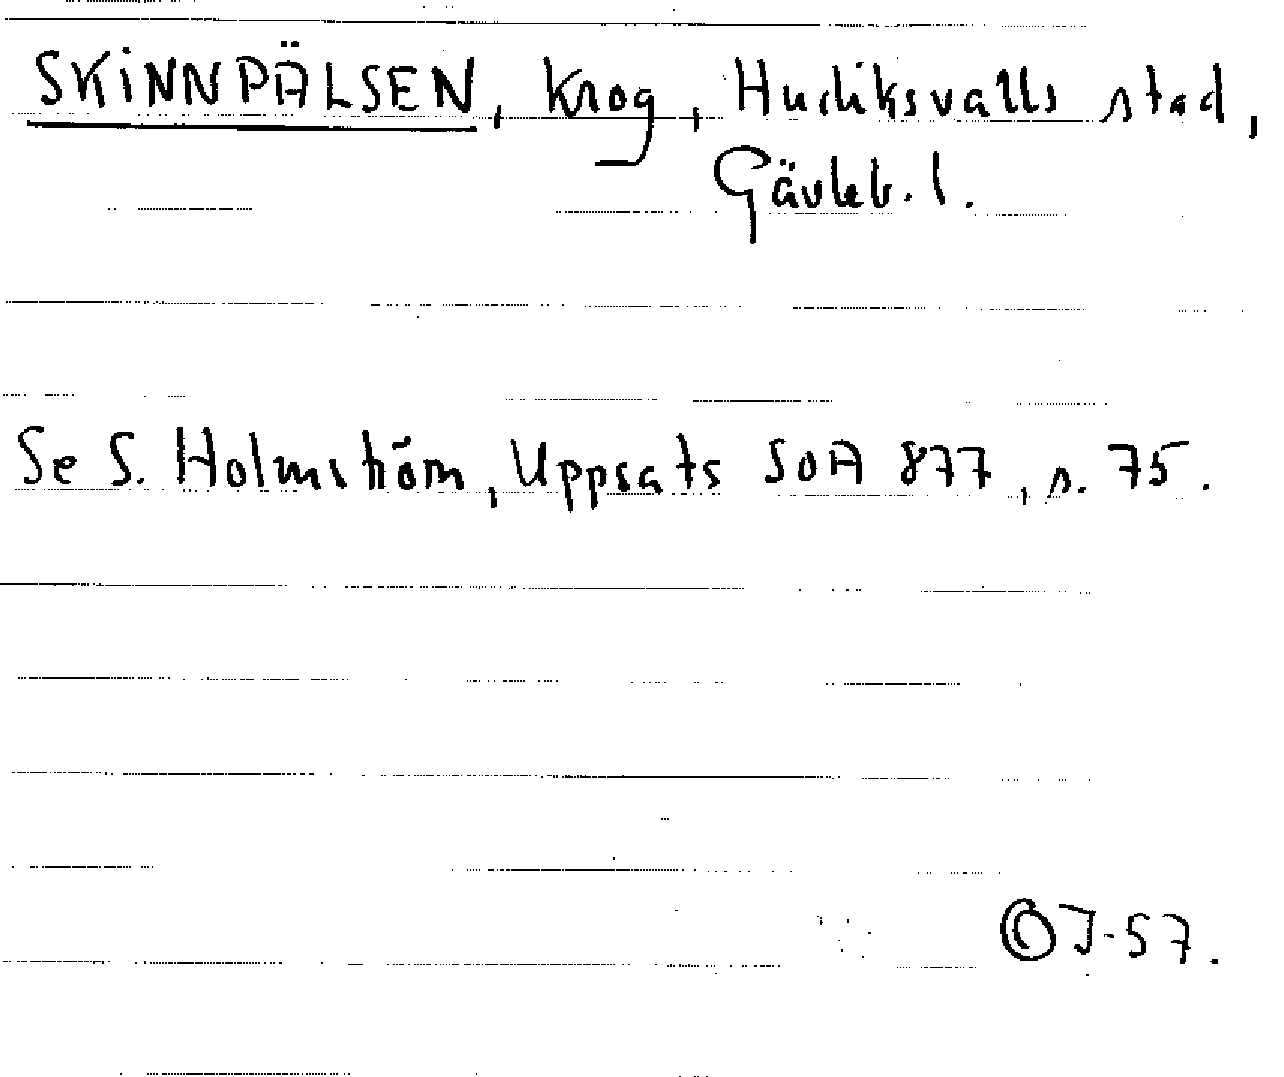 SKINNPÄLSEN, krog, Hudiksvalls stad,
Gävleb. l.
Se S. Holmström, Uppsats SOA 877, s. 75.
OJ-57.